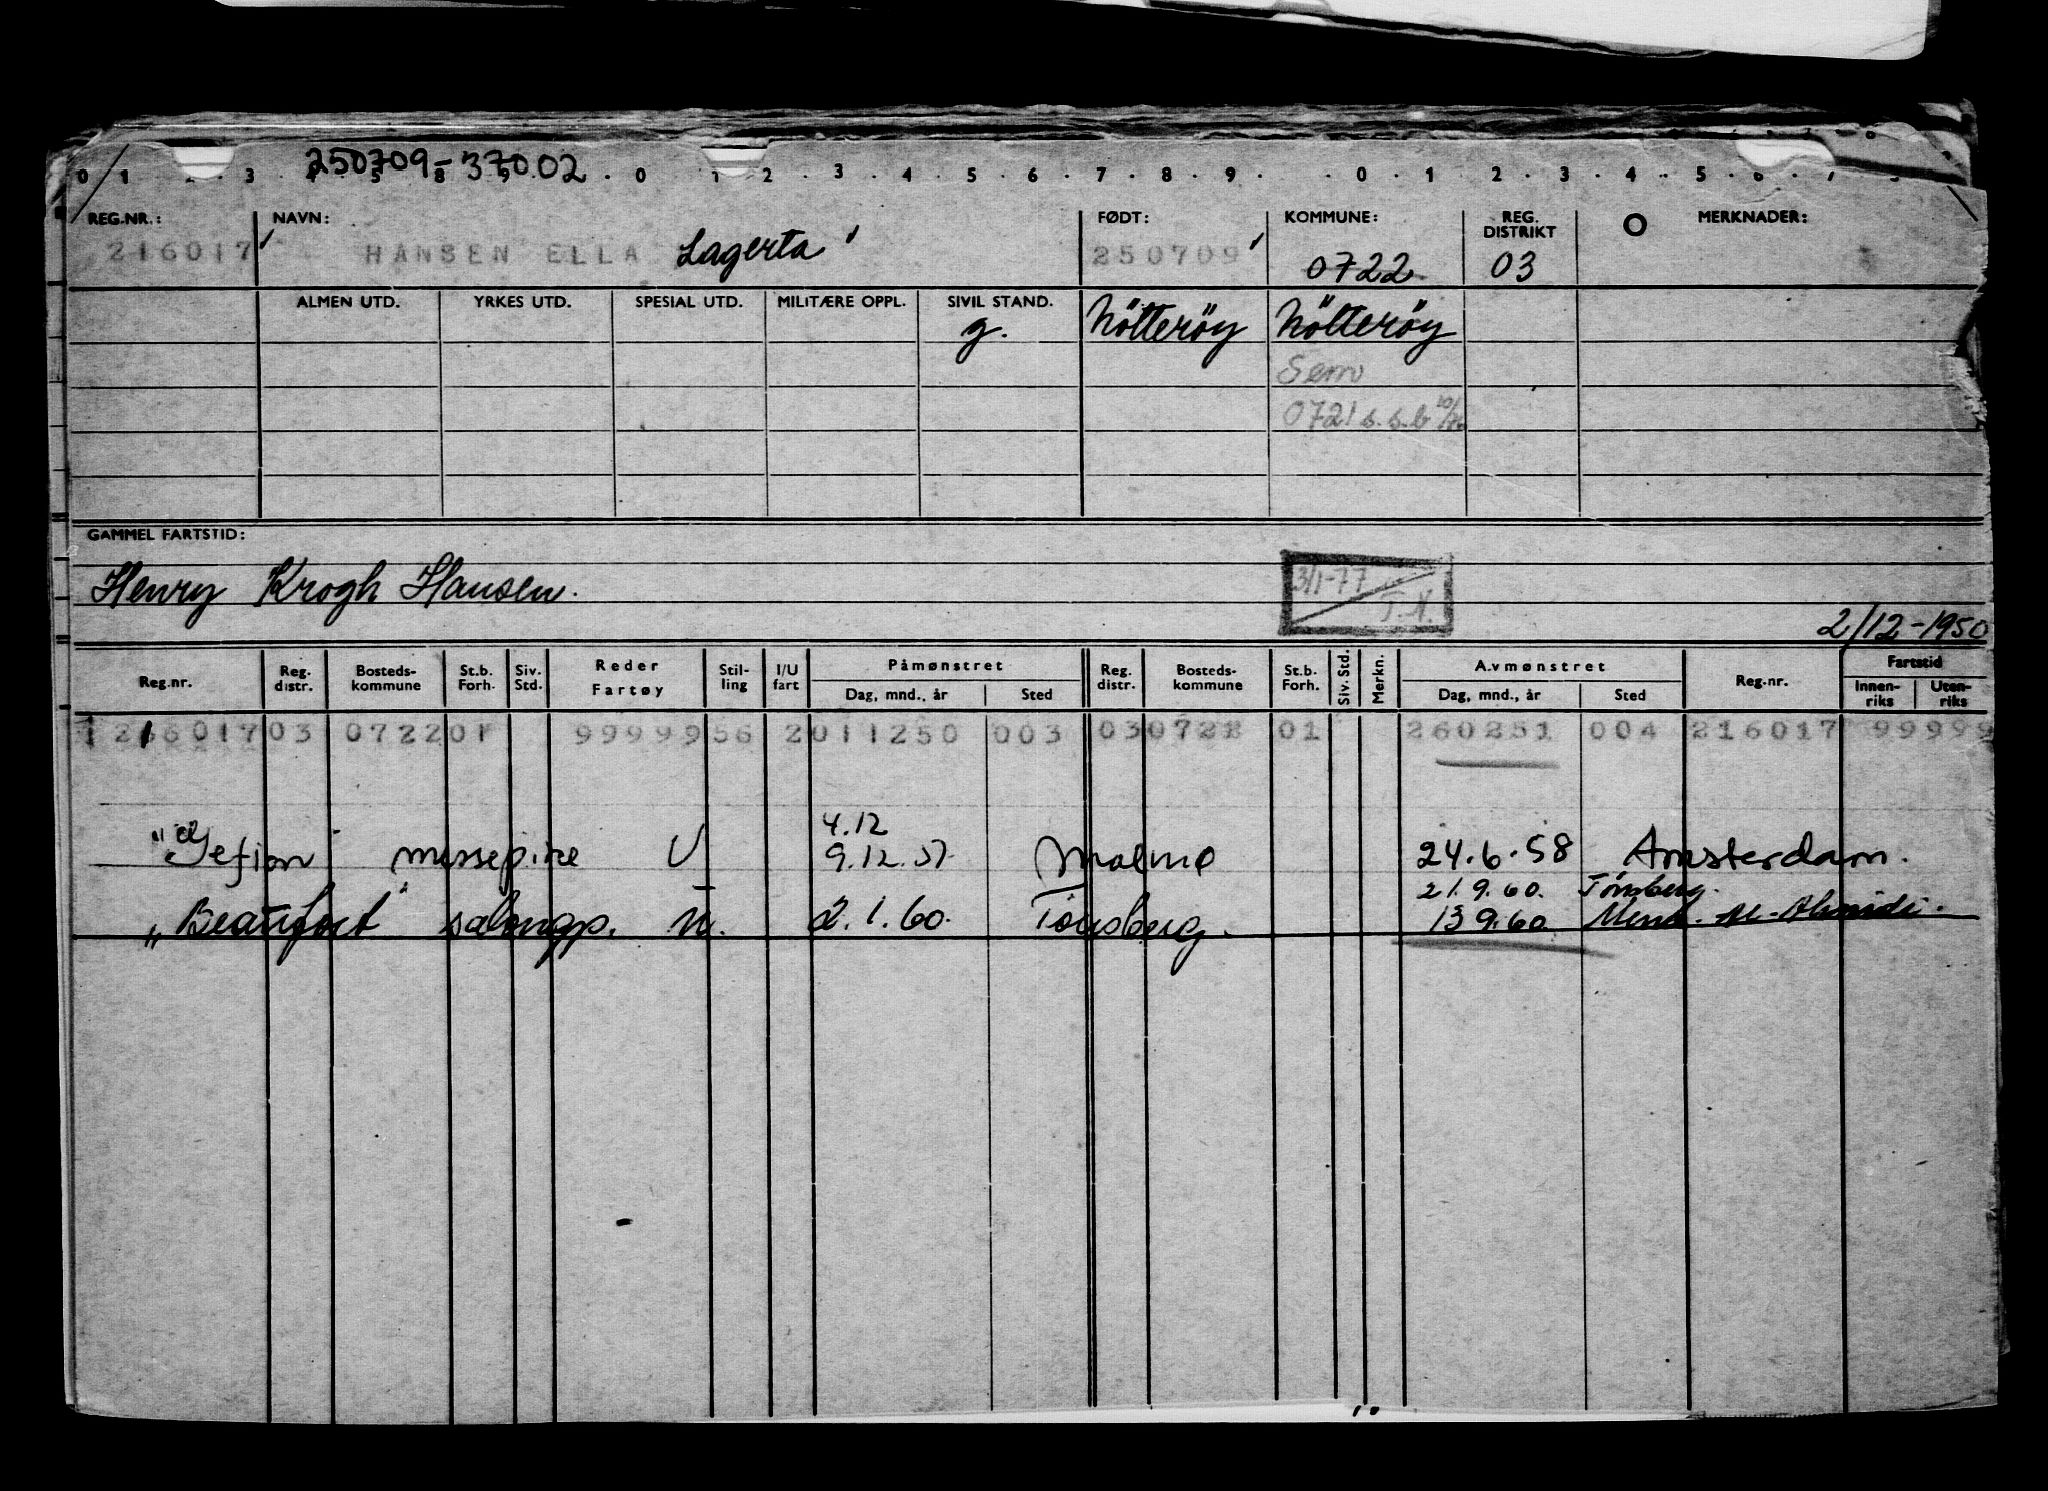 250709-37002
0 1 2 3 4 5 8 9 . 0 . 1 2 . 3 . 4 . 5 . 6 . 7 . 8 . 9 . . 0 . 1 . 2 . 3 . 4 . 5 . 6 . 7
REG.NR.: NAVN: FØDT: KOMMUNE: REG. DISTRIKT MERKNADER:
216017 HANSEN ELLA Lagerta 250709 0722 03
ALMEN UTD. YRKES UTD. SPESIAL UTD. MILITÆRE OPPL. SIVIL STAND.
g. Nötteröy Nötteröy
Sem
0721 s.s.b
GAMMEL FARTSTID:
Henry Krogh Hansen.
3/1-77
T.N.
2/12-1950
Reg.nr. Reg. distr. Bosteds-kommune St.b. Forh. Siv. Std. Reder Fartøy Stil-ling I/U fart Påmønstret Dag, mnd., år Sted Reg. distr. Bosteds-kommune St.b. Forh. Siv. Std. Merkn. Avmønstret Dag, mnd., år Sted Reg.nr. Fartstid Innen-riks Uten-riks
1 216017 03 0722 01 99999 56 2 011250 003 03 0722 01 260251 004 216017 99999
4.12
"Gefion messepike U 9.12.57. Malmø 24.6.58 Amsterdam.
21.9.60. Tønsberg.
"Beaufort" salongp. U. 2.1.60. Tønsberg. 13 9.60